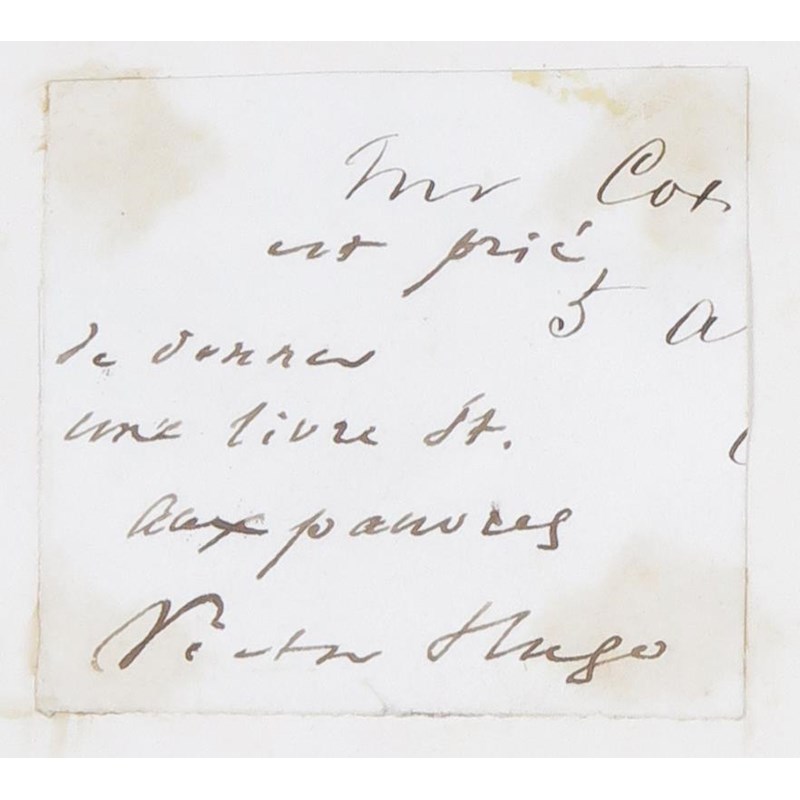 Mr Cox
est prié
5 A
de donner
une livre St.
aux pauvres
Victor Hugo